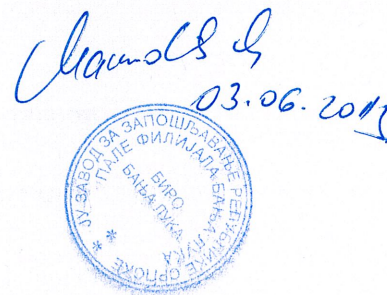 03.06.2013
ЈУ ЗАВОД ЗА ЗАПОШЉАВАЊЕ РЕПУБЛИКЕ СРПСКЕ
ПАЛЕ ФИЛИЈАЛА БАЊА ЛУКА
БИРО
БАЊА ЛУКА